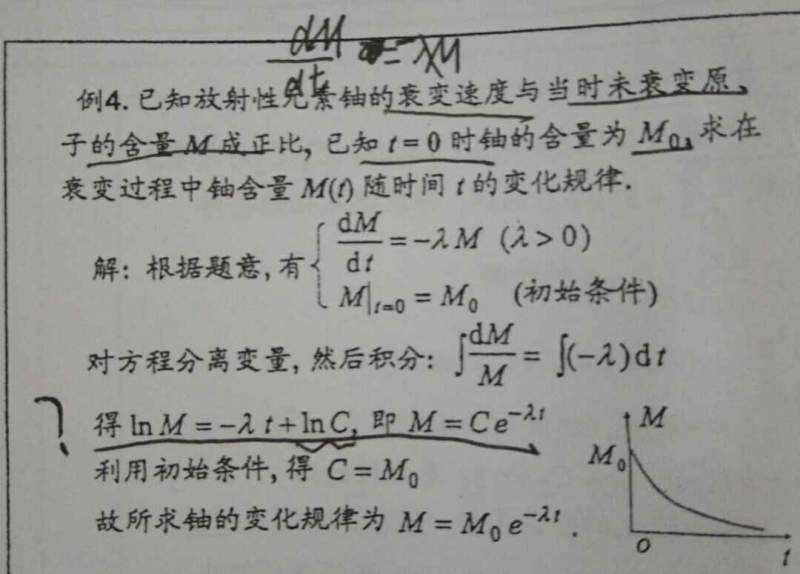 dM/dt = λM
例4. 已知放射性元素铀的衰变速度与当时未衰变原
子的含量 M 成正比, 已知 t = 0 时铀的含量为 M₀, 求在
衰变过程中铀含量 M(t) 随时间 t 的变化规律.
解: 根据题意, 有 { dM/dt = −λM (λ > 0)
M|t=0 = M₀ (初始条件)
对方程分离变量, 然后积分: ∫dM/M = ∫(−λ)dt
? 得 ln M = −λ t + ln C, 即 M = C e^{−λt}
利用初始条件, 得 C = M₀
故所求铀的变化规律为 M = M₀ e^{−λt}.
M
M₀
O
t